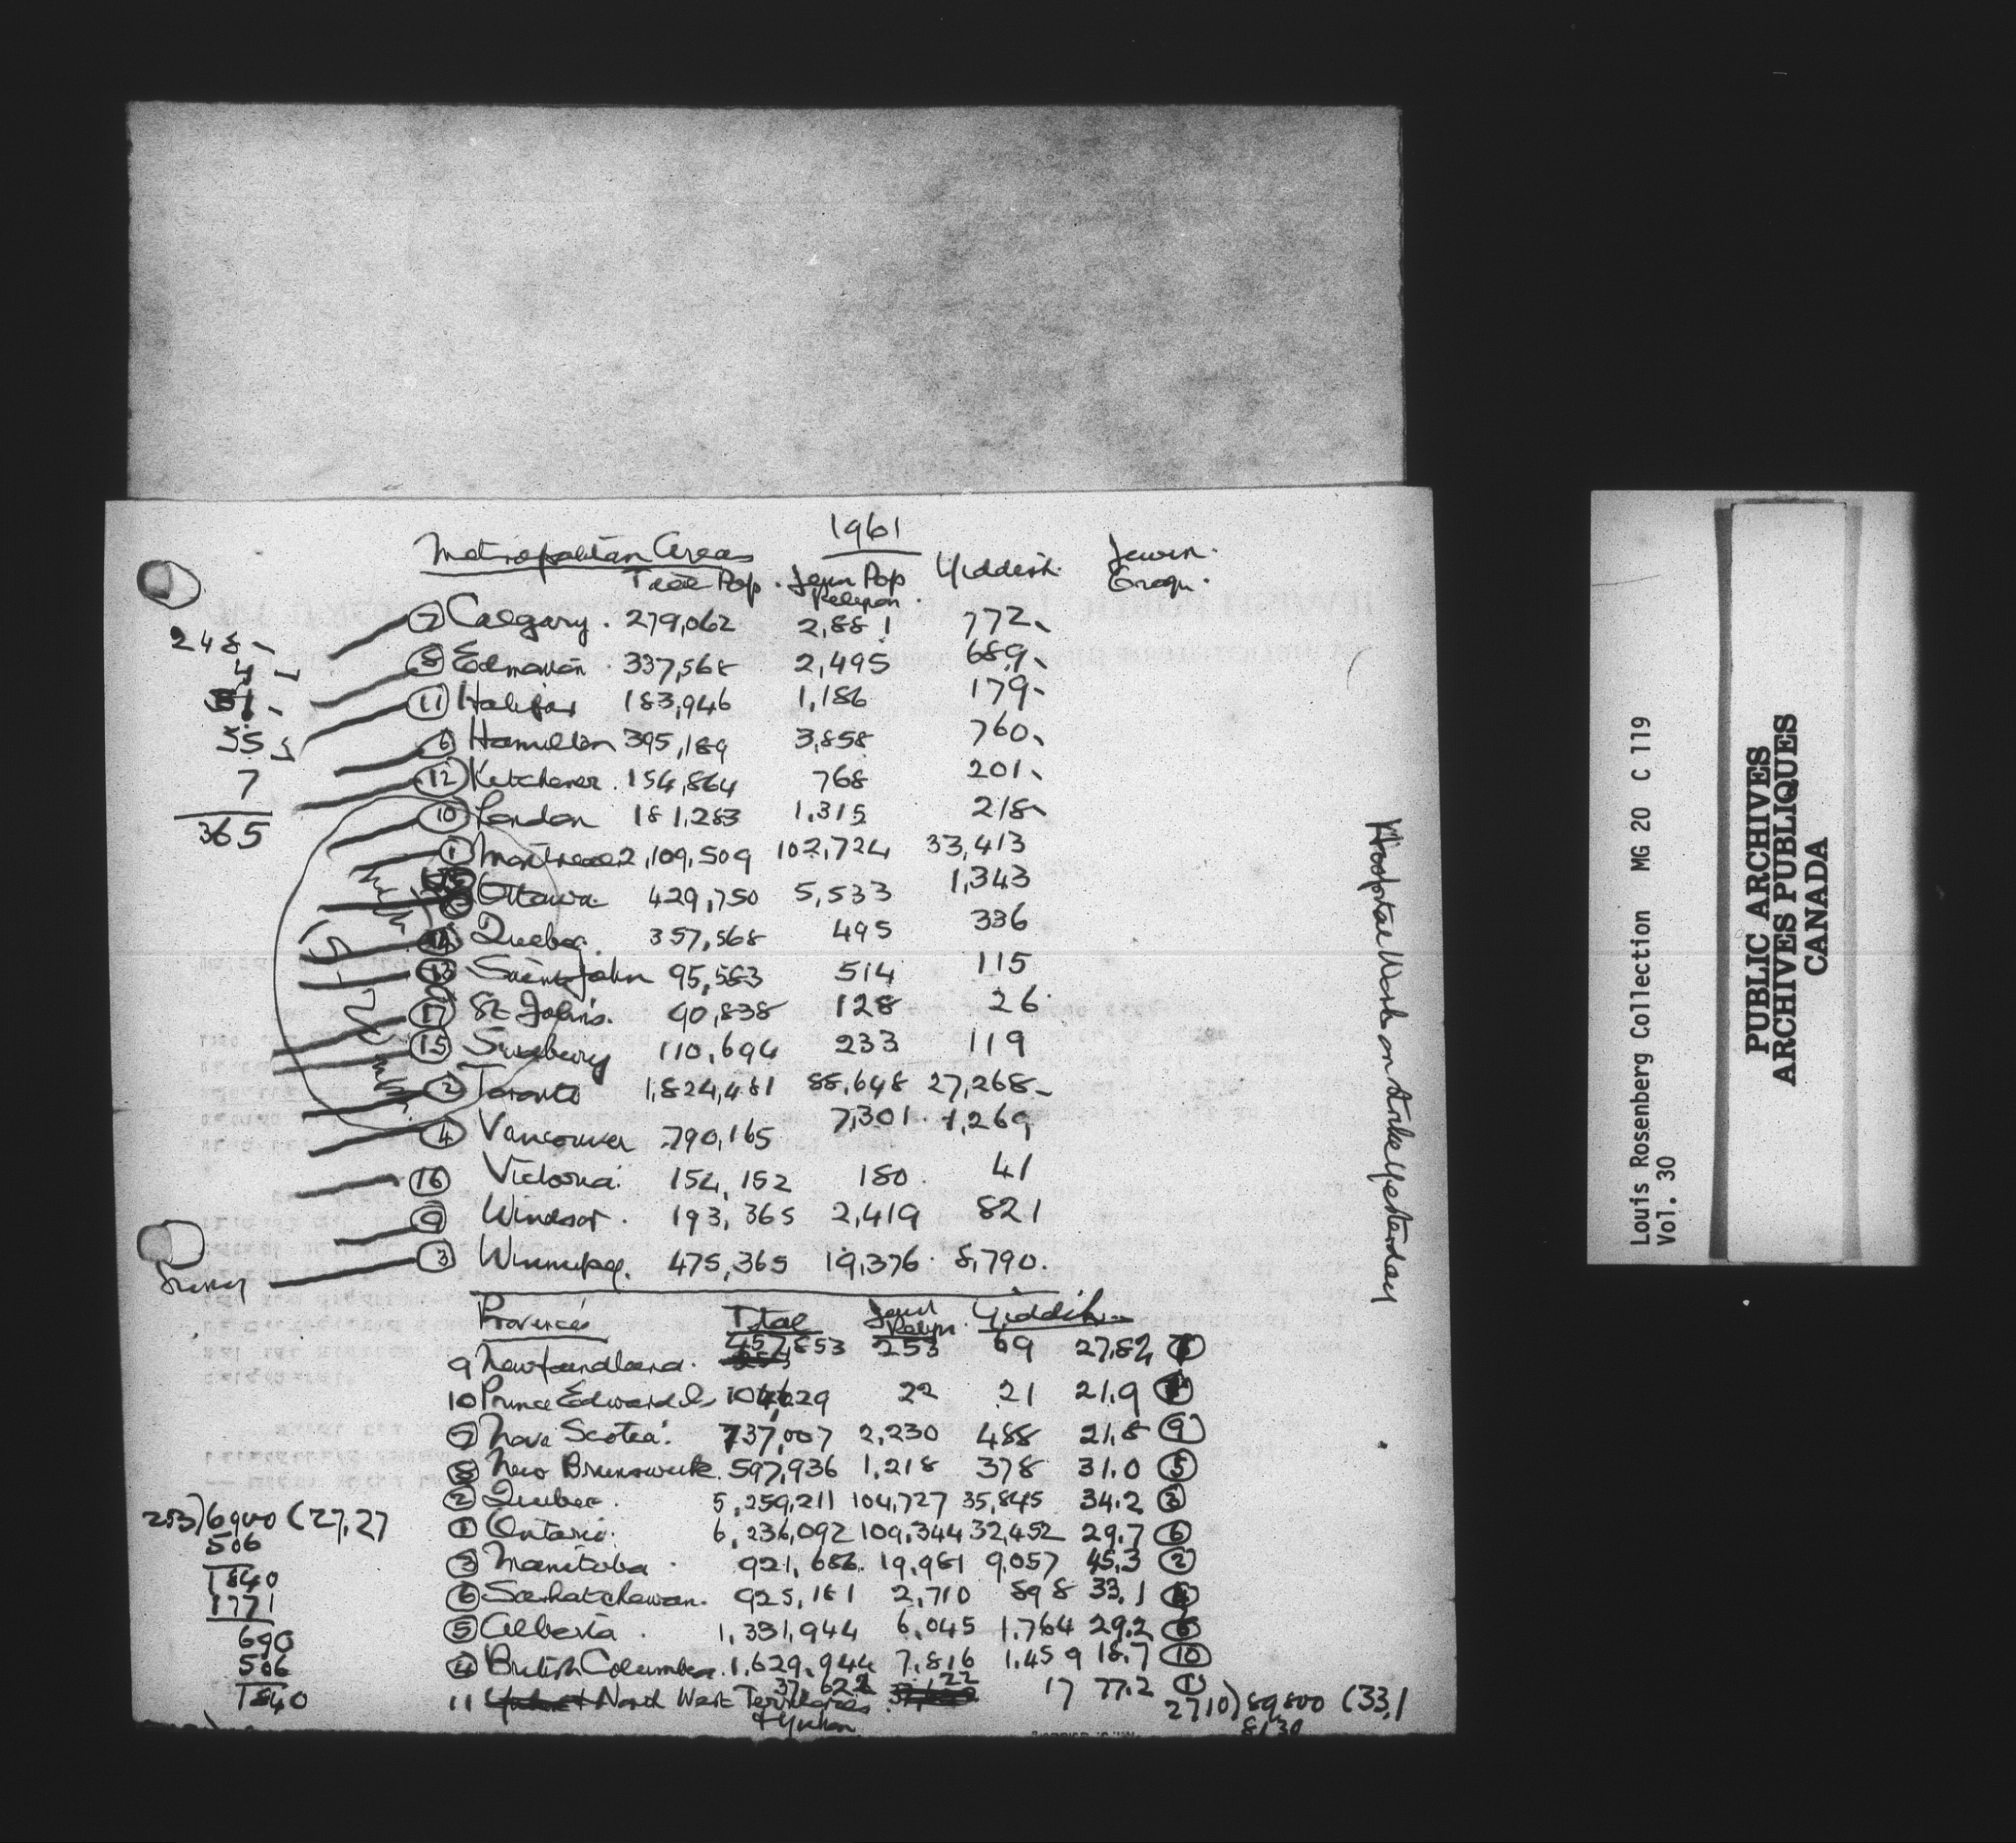 1961
Metropolitan Areas
Total Pop. Jewish Pop Religion. Yiddish.
7 Calgary. 279,062 2,881 772
8 Edmonton. 337,568 2,495 689
11 Halifax 183,946 1,186 179
6 Hamilton 395,189 3,858 760
12 Kitchener. 154,864 768 201
10 London 181,283 1,315 218
1 Montreal 2,109,509 102,724 33,413
Ottawa 429,750 5,533 1,343
14 Quebec. 357,568 495 336
13 Saint John 95,563 514 115
17 St John's. 90,838 128 26
15 Sudbury 110,694 233 119
2 Toronto 1,824,481 88,648 27,268
4 Vancouver 790,165 7,301 1,269
16 Victoria 154,152 180 41
9 Windsor. 193,365 2,419 821
3 Winnipeg. 475,365 19,376 8,790
248
4
55
7
365
Provinces Total Yiddish
9 Newfoundland. 457,853 253 69
10 Prince Edward Is 22 21 21.9
7 Nova Scotia. 737,007 2,230 488 21.8 9
8 New Brunswick. 597,936 1,218 378 31.0 5
2 Quebec. 5,259,211 104,727 35,845 34.2 3
1 Ontario. 6,236,092 109,344 32,452 29.7 6
3 Manitoba. 921,686 19,981 9,057 45.3 2
6 Saskatchewan. 925,181 2,710 898 33.1
5 Alberta. 1,331,944 6,045 1,764 29.2
4 British Columbia. 1,629,944 7,816 1,459 18.7 10
11 North West Territories & Yukon 37,622 122 17 77.2 1
253)6900(27,27
506
1840
1771
690
506
1840
2710)89800(33,1
8130
Hospital Work on Strike Yesterday
Louis Rosenberg Collection MG 20 C 119
Vol. 30
PUBLIC ARCHIVES
ARCHIVES PUBLIQUES
CANADA